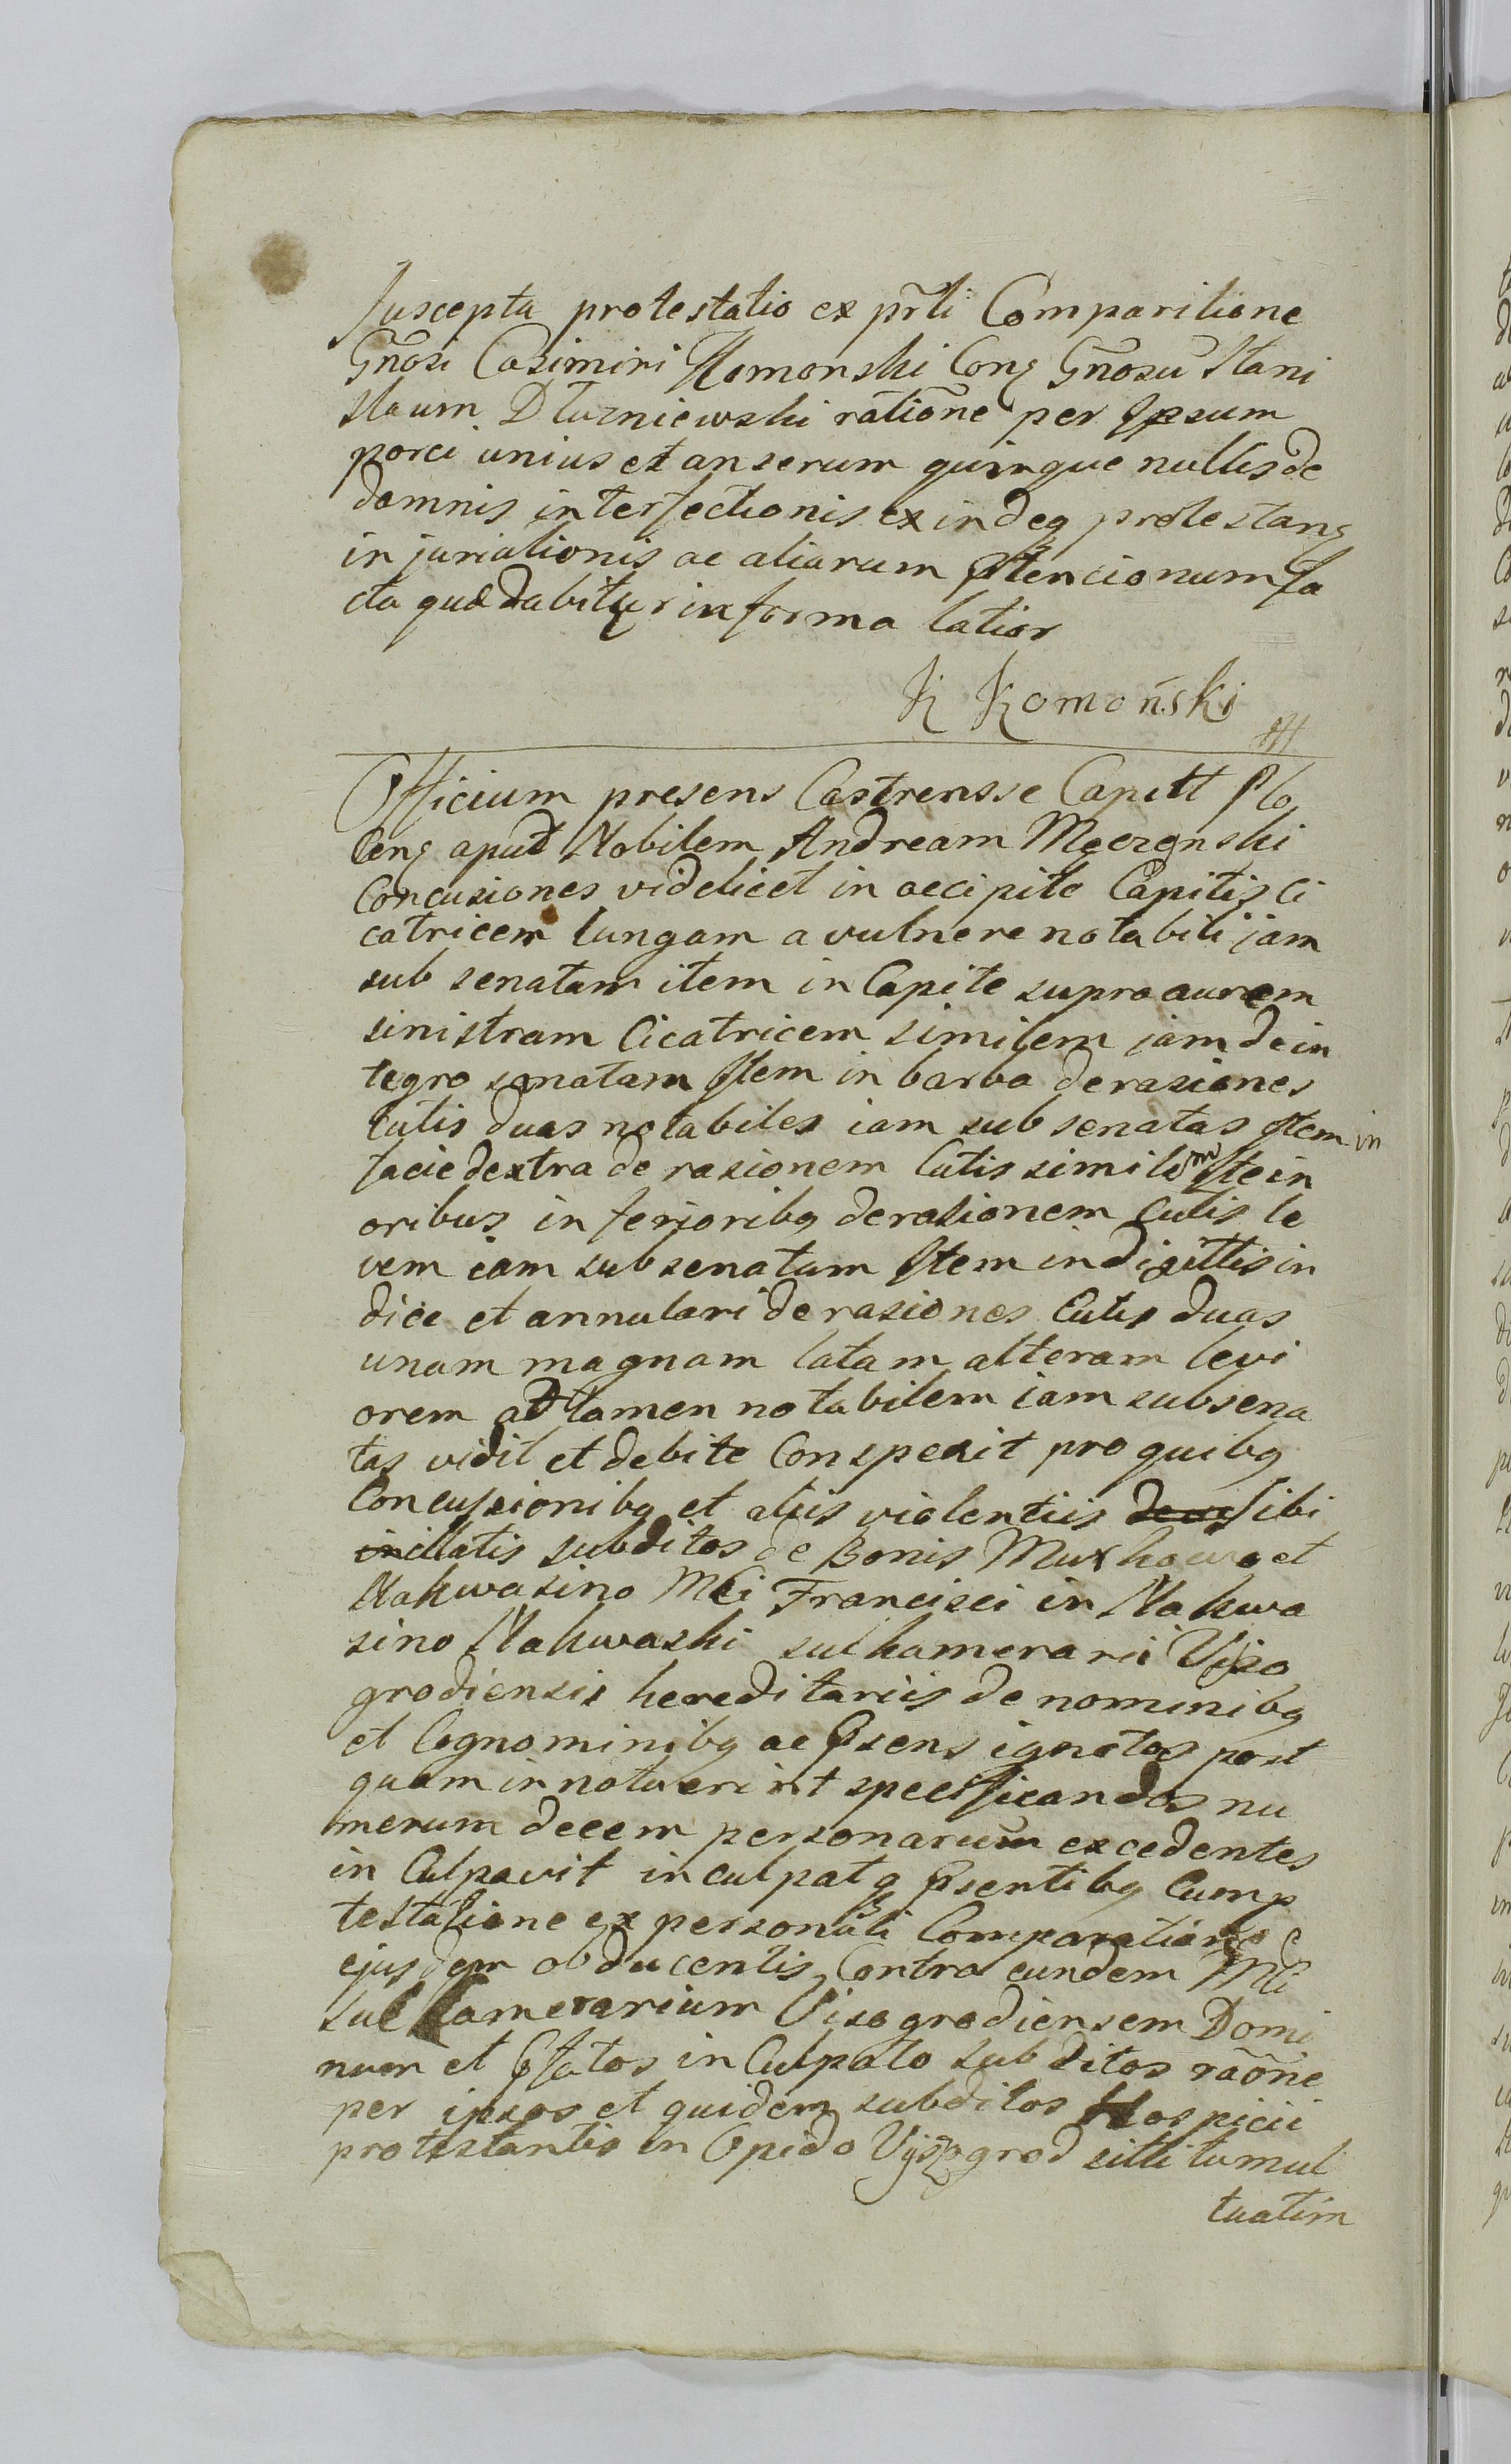 Suscepta protestatio ex prli Comparitione
Gnosi Casimiri Komonski Cong Gnosu Stani
slaum Dluzniewski ratione per Ipsum
porci unius et anserum quinque nullis de
damnis interfectionis exindeq protestang
injuriationis ac aliarum Ptencionum fa
cta quæ dabitur in forma latior
K Komoński
Officium presens Castrensse Capitt Plo
Ceng aput Nobilem Andream
Concusiones videlicet in occipite Capitis Ci
catricem lungam a vulnere notabili jam
sub senatam item in Capite supra aurem
sinistram Cicatricem similem jam de in
tegro sanatam Item in barba derasiones
Cutis duas notabiles iam sub senatas Item in
facie dextra de rasionem Cutis similem Ite in
oribus inferioribq derasionem Cutis le
vem iam subsenatam Item in digittis in
dice et annulari derasiones Cutis duas
unam magnam latam alteram levi
orem adtamen notabilem iam subsena
tas vidit et debite Conspexit pro quibq
Concussionibq et aliis violentiis sibi
illatis subditos de Bonis et
Nakwasino Mci Francisci in Nakwa
sino Nakwaski sukamerarii Viso
grodiensis hereditariis de nominibq
et Cognominibq ac Psens ignotos post
quam innotuerint specificandos nu
merum decem personarum excedentes
in Culpavit inculpatq Psentibq Cump
testatione ex personali Comparatione
ejusdem obducentis Contra eundem Mci
Sukamerarium Visogrodiensem Domi
num et Pfatos in Culpato subditos raone
per ipsos et quidem subditos Hospicii
protestantis in Opido Vyszogrod sitti tumul
tuatim